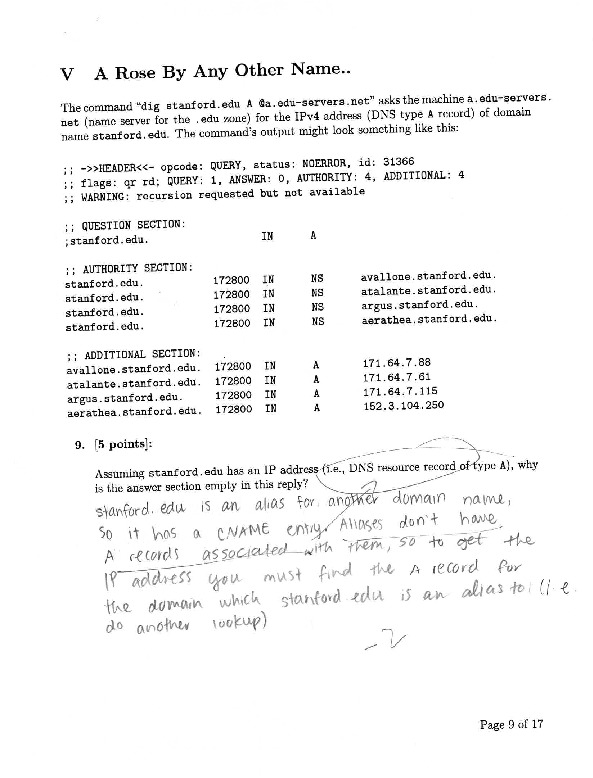 V A Rose By Any Other Name..
The command "dig stanford.edu A @a.edu-servers.net" asks the machine a.edu-servers.
net (name server for the .edu zone) for the IPv4 address (DNS type A record) of domain
name stanford.edu. The command's output might look something like this:
;; ->>HEADER<<- opcode: QUERY, status: NOERROR, id: 31366
;; flags: qr rd; QUERY: 1, ANSWER: 0, AUTHORITY: 4, ADDITIONAL: 4
;; WARNING: recursion requested but not available
;; QUESTION SECTION:
;stanford.edu. IN A
;; AUTHORITY SECTION:
stanford.edu. 172800 IN NS avallone.stanford.edu.
stanford.edu. 172800 IN NS atalante.stanford.edu.
stanford.edu. 172800 IN NS argus.stanford.edu.
stanford.edu. 172800 IN NS aerathea.stanford.edu.
;; ADDITIONAL SECTION:
avallone.stanford.edu. 172800 IN A 171.64.7.88
atalante.stanford.edu. 172800 IN A 171.64.7.61
argus.stanford.edu. 172800 IN A 171.64.7.115
aerathea.stanford.edu. 172800 IN A 152.3.104.250
9. [5 points]:
Assuming stanford.edu has an IP address (i.e., DNS resource record of type A), why
is the answer section empty in this reply? ?
stanford.edu is an alias for another domain name,
so it has a CNAME entry. Aliases don't have
A records associated with them, so to get the
IP address you must find the A record for
the domain which stanford.edu is an alias to (i.e.
do another lookup)
-2
Page 9 of 17